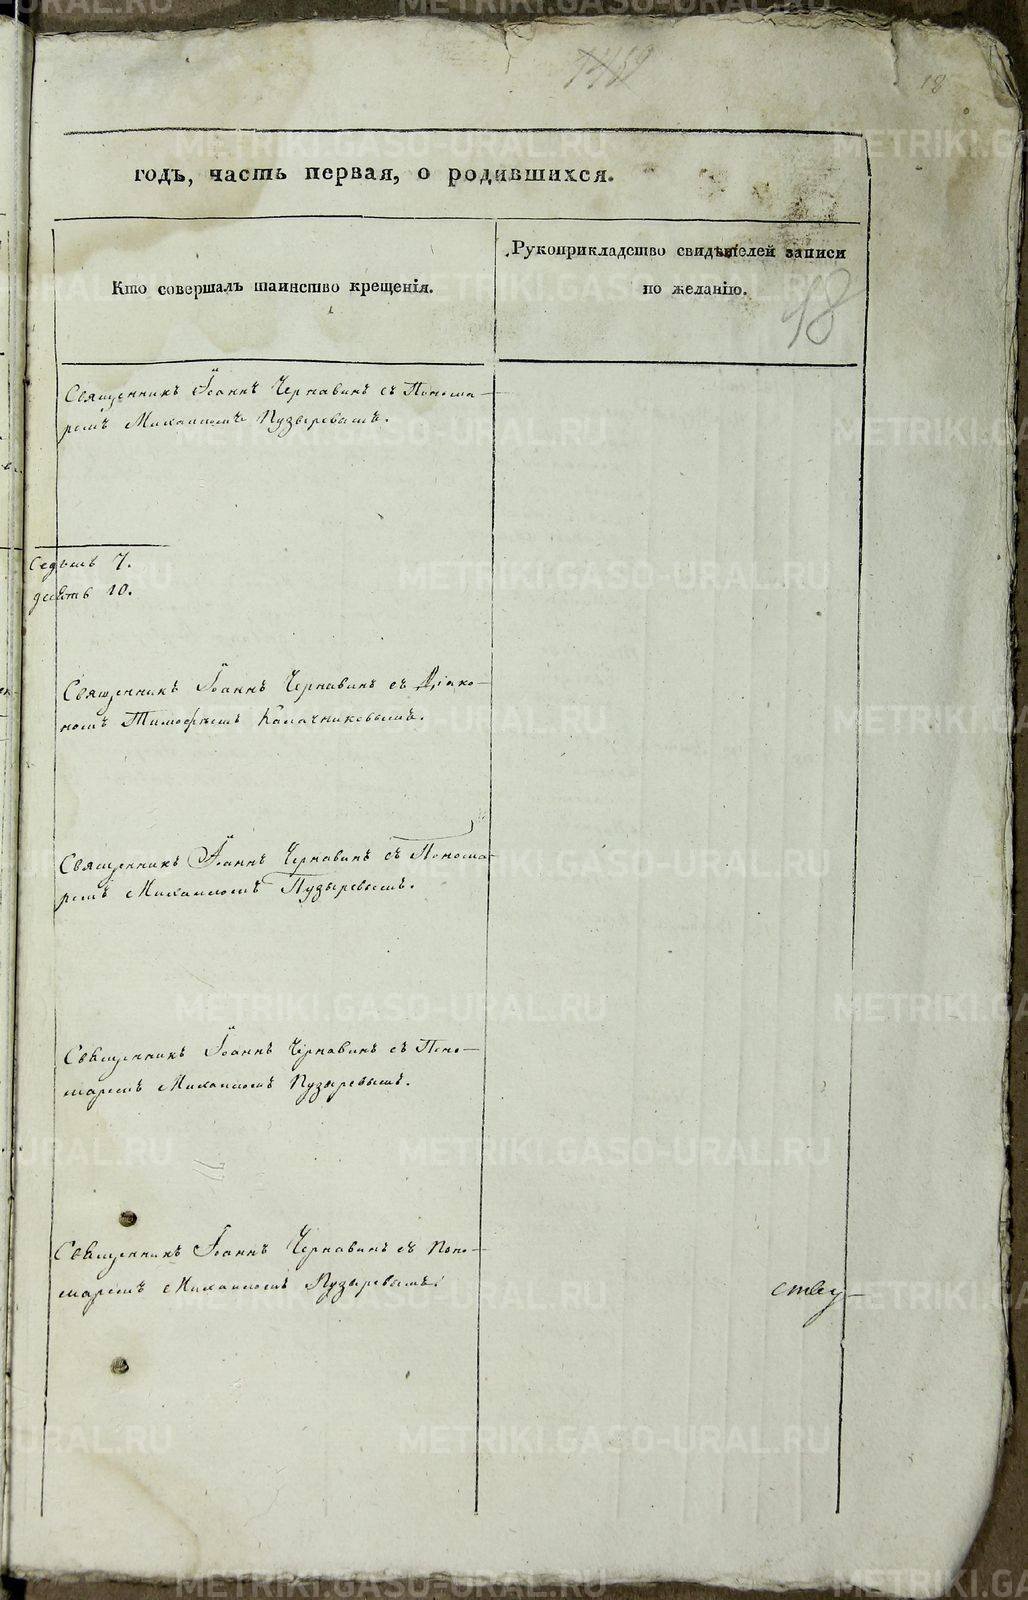 18
годъ, часть первая, о родившихся.
Кто совершалъ таинство крещенія.
Рукоприкладство свидѣтелей записи
по желанію.
18
Священникъ Іоаннъ Чернавинъ съ Понома-
ремъ Михаиломъ Пузыревымъ.
Седьмь 7.
десять 10.
Священникъ Іоаннъ Чернавинъ съ Діако-
номъ Тимофѣемъ Калачниковымъ.
Священникъ Іоаннъ Чернавинъ съ Понома-
ремъ Михаиломъ Пузыревымъ.
Священникъ Іоаннъ Чернавинъ съ Поно-
маремъ Михаиломъ Пузыревымъ.
Священникъ Іоаннъ Чернавинъ съ Поно-
маремъ Михаиломъ Пузыревымъ.
ству-
METRIKI.GASO-URAL.RU